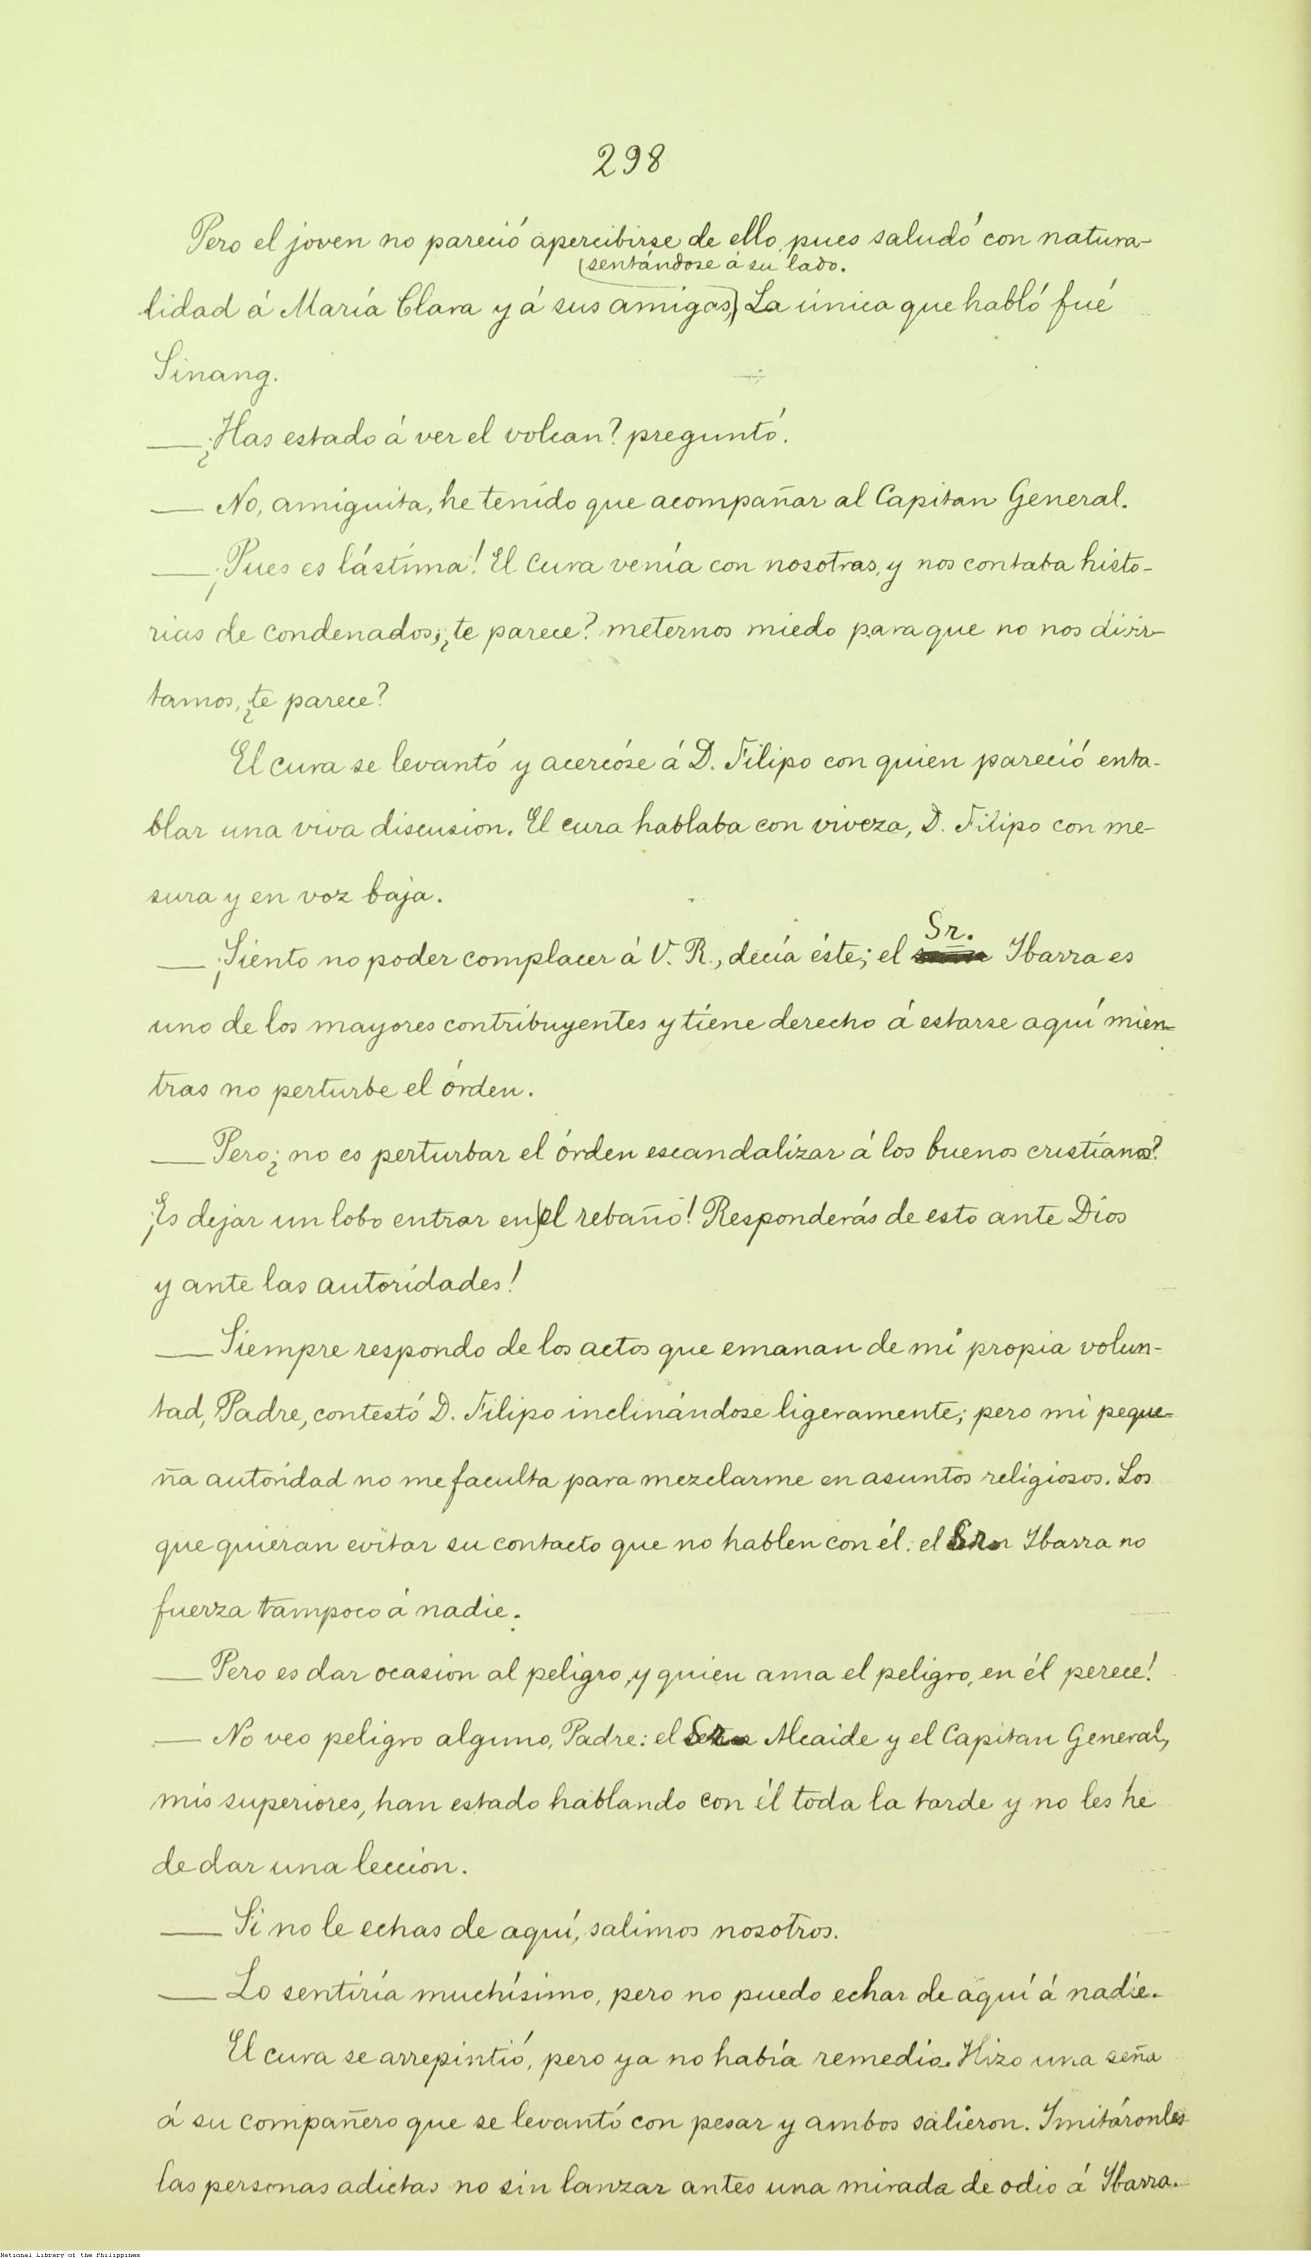 298
Pero el joven no pareció apercibirse de ello, pues saludó con natura-
(sentándose á su lado.
lidad á María Clara y á sus amigas,) La única que habló fué
Sinang.
— ¿Has estado á ver el volcan? preguntó.
— No, amiguita, he tenido que acompañar al Capitan General.
— ¡Pues es lástima! El cura venía con nosotras, y nos contaba histo-
rias de condenados, ¿te parece? meternos miedo para que no nos divir-
tamos, ¿te parece?
El cura se levantó y acercóse á D. Filipo con quien pareció enta-
blar una viva discusion. El cura hablaba con viveza, D. Filipo con me-
sura y en voz baja.
Sr.
— ¡Siento no poder complacer á V. R., decía éste; el Ibarra es
uno de los mayores contribuyentes y tiene derecho á estarse aquí mien-
tras no perturbe el órden.
— Pero ¿no es perturbar el órden escandalizar á los buenos cristianos?
¡Es dejar un lobo entrar en el rebaño! Responderás de esto ante Dios
y ante las autoridades!
— Siempre respondo de los actos que emanan de mi propia volun-
tad, Padre, contestó D. Filipo inclinándose ligeramente; pero mi peque-
ña autoridad no me faculta para mezclarme en asuntos religiosos. Los
que quieran evitar su contacto que no hablen con él: el Sr. Ibarra no
fuerza tampoco á nadie.
— Pero es dar ocasion al peligro, y quien ama el peligro, en él perece!
— No veo peligro alguno, Padre: el Sr. Alcaide y el Capitan General,
mis superiores, han estado hablando con él toda la tarde y no les he
de dar una leccion.
— Si no le echas de aquí, salimos nosotros.
— Lo sentiría muchísimo, pero no puedo echar de aquí á nadie.
El cura se arrepintió, pero ya no había remedio. Hizo una seña
á su compañero que se levantó con pesar y ambos salieron. Imitáronles
las personas adictas no sin lanzar antes una mirada de odio á Ibarra.
National Library of the Philippines